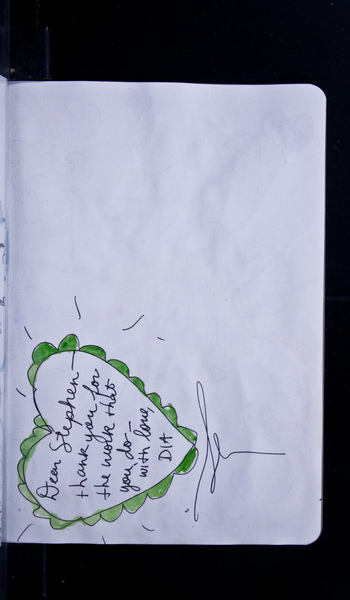 Dear Stephen—
thank you for
the work that
you do—
with love,
DIA